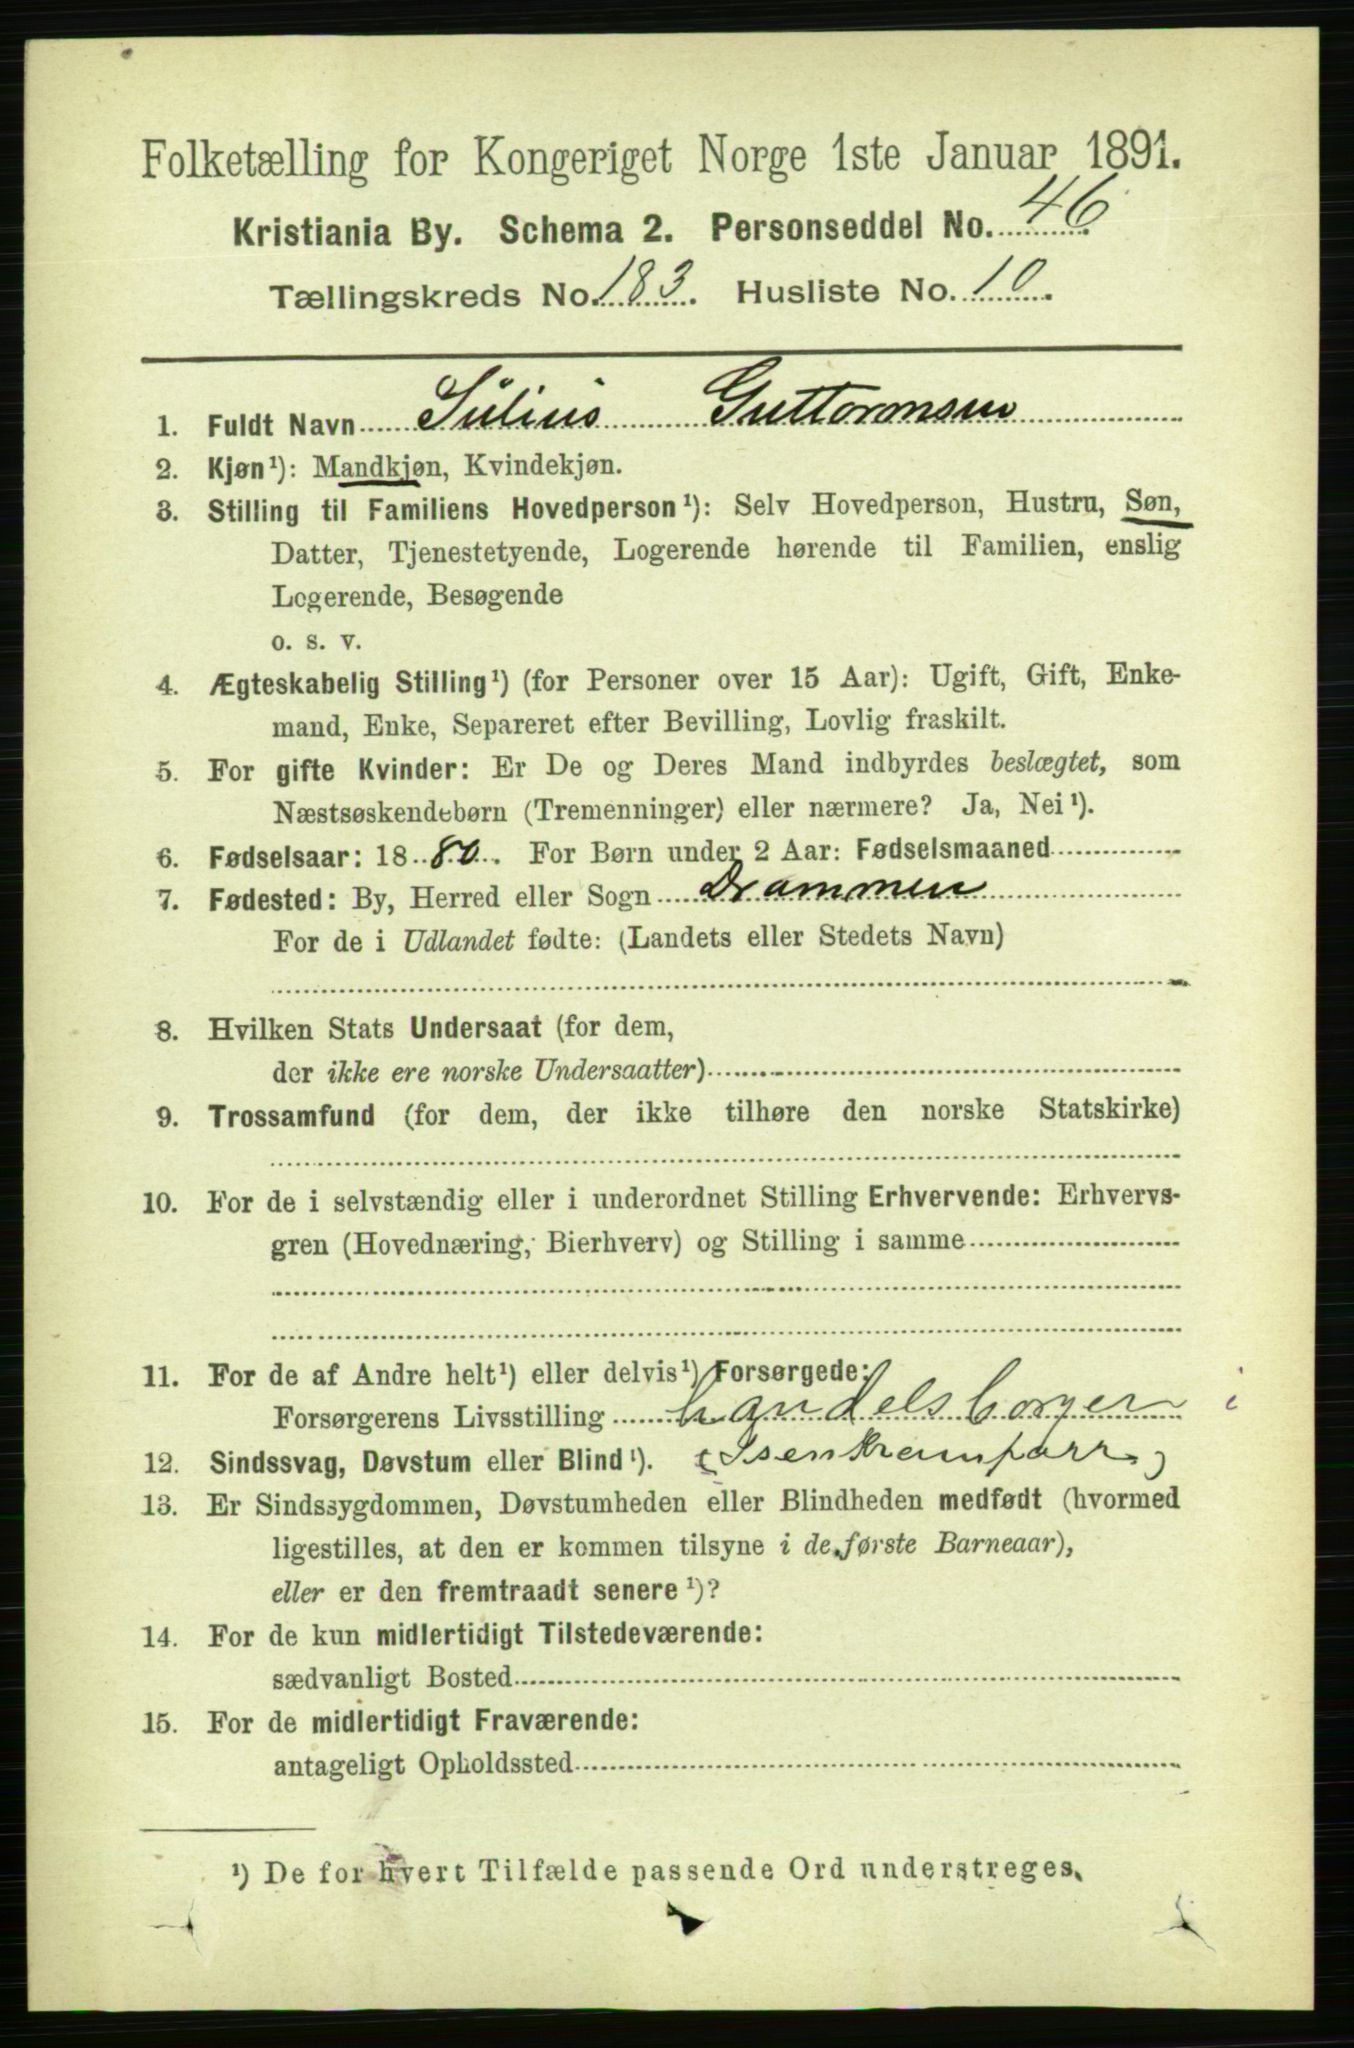 Folketælling for Kongeriget Norge 1ste Januar 1891.
Kristiania By. Schema 2. Personseddel No. 46
Tællingskreds No. 183. Husliste No. 10.
1. Fuldt Navn Julius Guttormsen
2. Kjøn¹): Mandkjøn, Kvindekjøn.
3. Stilling til Familiens Hovedperson¹): Selv Hovedperson, Hustru, Søn,
Datter, Tjenestetyende, Logerende hørende til Familien, enslig
Logerende, Besøgende
o. s. v.
4. Ægteskabelig Stilling¹) (for Personer over 15 Aar): Ugift, Gift, Enke-
mand, Enke, Separeret efter Bevilling, Lovlig fraskilt.
5. For gifte Kvinder: Er De og Deres Mand indbyrdes beslægtet, som
Næstsøskendebørn (Tremenninger) eller nærmere? Ja, Nei¹).
6. Fødselsaar: 1880. For Børn under 2 Aar: Fødselsmaaned
7. Fødested: By, Herred eller Sogn Drammen
For de i Udlandet fødte: (Landets eller Stedets Navn)
8. Hvilken Stats Undersaat (for dem,
der ikke ere norske Undersaatter)
9. Trossamfund (for dem, der ikke tilhøre den norske Statskirke)
10. For de i selvstændig eller i underordnet Stilling Erhvervende: Erhvervs-
gren (Hovednæring, Bierhverv) og Stilling i samme
11. For de af Andre helt¹) eller delvis¹) Forsørgede:
Forsørgerens Livsstilling handelsborger i
12. Sindssvag, Døvstum eller Blind¹). (Isenkramforr.)
13. Er Sindssygdommen, Døvstumheden eller Blindheden medfødt (hvormed
ligestilles, at den er kommen tilsyne i de første Barneaar),
eller er den fremtraadt senere¹)?
14. For de kun midlertidigt Tilstedeværende:
sædvanligt Bosted
15. For de midlertidigt Fraværende:
antageligt Opholdssted
¹) De for hvert Tilfælde passende Ord understreges.